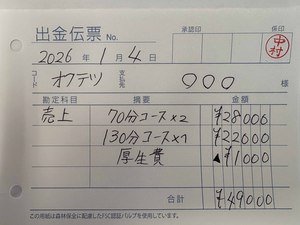 出金伝票 No. 承認印 係印
中村
2026年 1月 4日
コード オフテツ 支払先 〇〇〇 様
勘定科目 摘要 金額
売上 70分コース×2 ¥28000
130分コース×1 ¥22000
厚生費 ▲¥1000
合計 ¥49000
この用紙は森林保全に配慮したFSC認証パルプを使用しています。